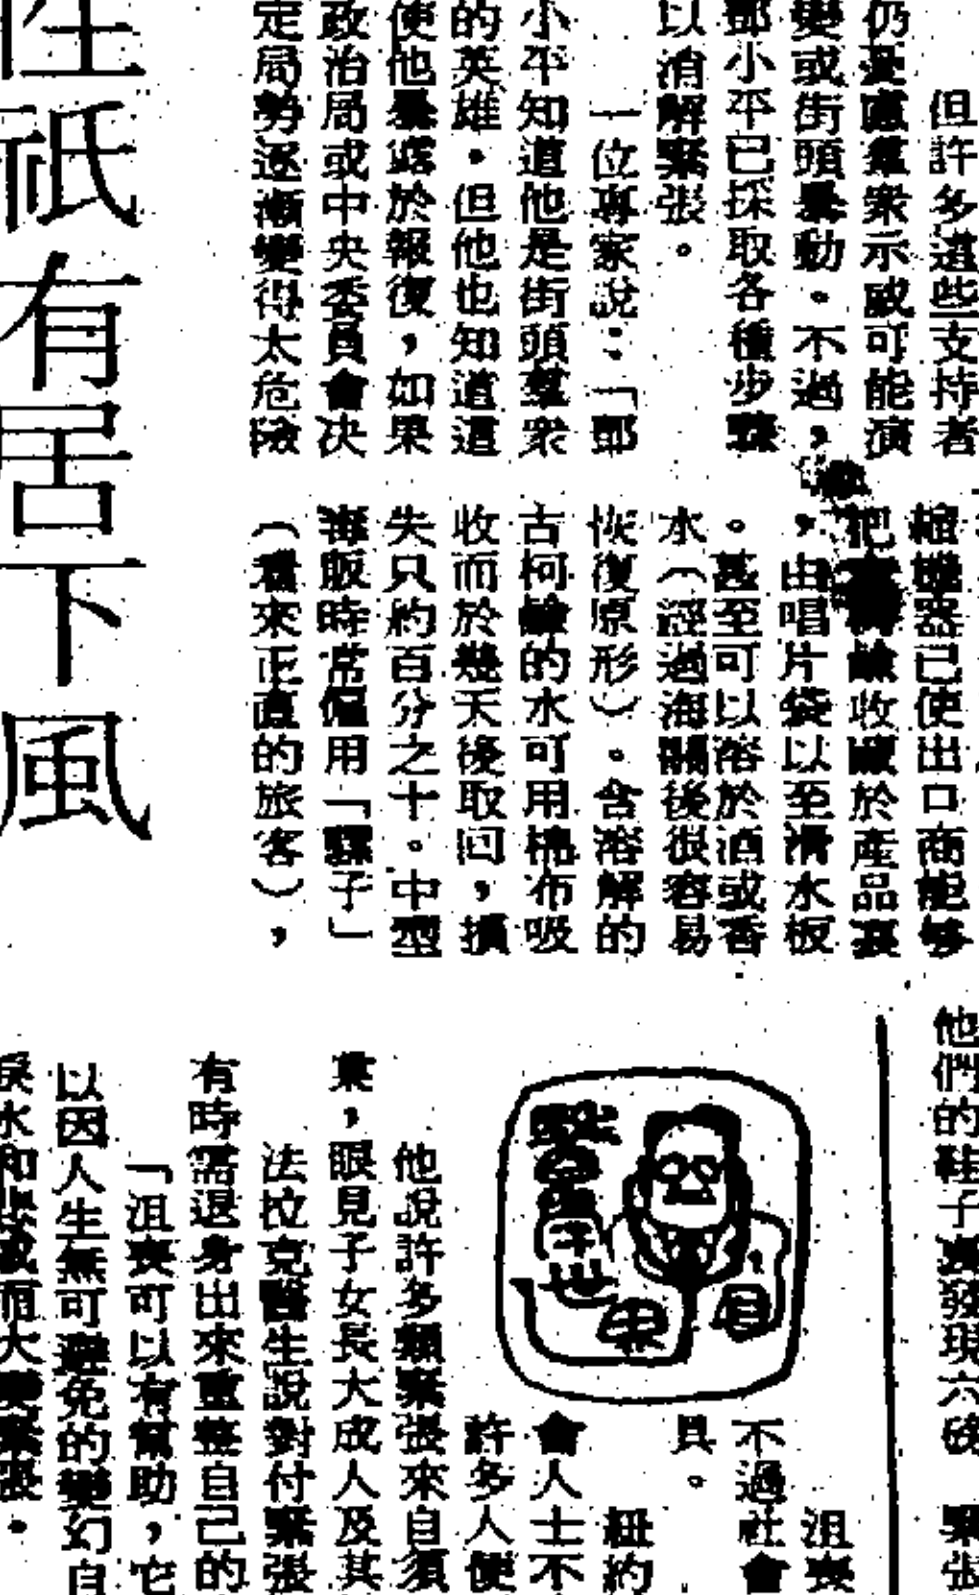 但許多這些支持者
仍憂慮羣衆示威可能演
變或街頭暴動。不過，
鄧小平已採取各種步驟
以消解緊張。
一位專家說：「鄧
小平知道他是街頭羣衆
的英雄。但他也知道這
使他暴露於報復，如果
政治局或中央委員會决
定局勢逐漸變得太危險
祇有居下風
縮機器已使出口商能够
把古柯鹼收藏於產品裏
，由唱片袋以至滑水板
。甚至可以溶於酒或香
水（經過海關後很容易
恢復原形）。含溶解的
古柯鹼的水可用棉布吸
收而於幾天後取回，損
失只約百分之十。中型
毒販時常僱用「騾子」
（看來正直的旅客），
他們的鞋子裏發現六磅
緊張
沮喪
不過社會
具。
紐約
會人士不
許多人便
他說許多類緊張來自須
棄，眼見子女長大成人及其
法拉克醫生說對付緊張
有時需退身出來重整自己的
「沮喪可以有幫助，它
以因人生無可避免的變幻自
淚水和
而大
緊張。